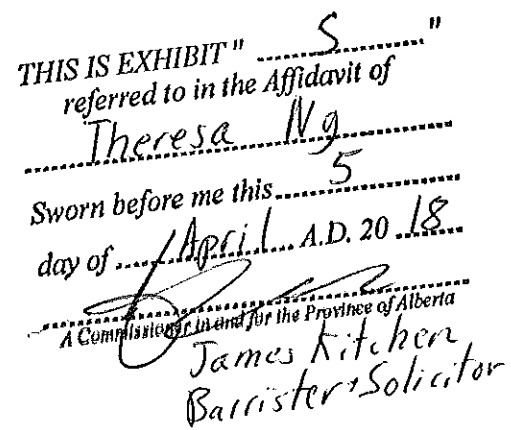 THIS IS EXHIBIT " S "
referred to in the Affidavit of
Theresa Ng
Sworn before me this 5
day of April A.D. 20 18
A Commissioner in and for the Province of Alberta
James Kitchen
Barrister & Solicitor